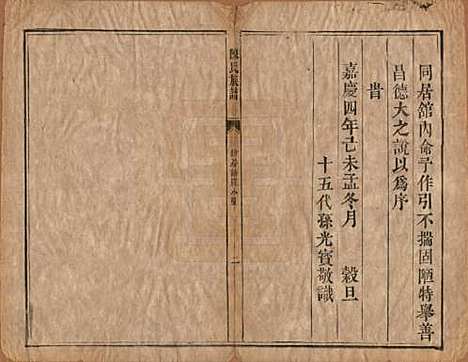 同居舘內命予作引不揣固陋特舉善
昌德大之說以爲序
旹
嘉慶四年己未孟冬月　穀旦
十五代孫光寳敬識
陳氏族譜
一